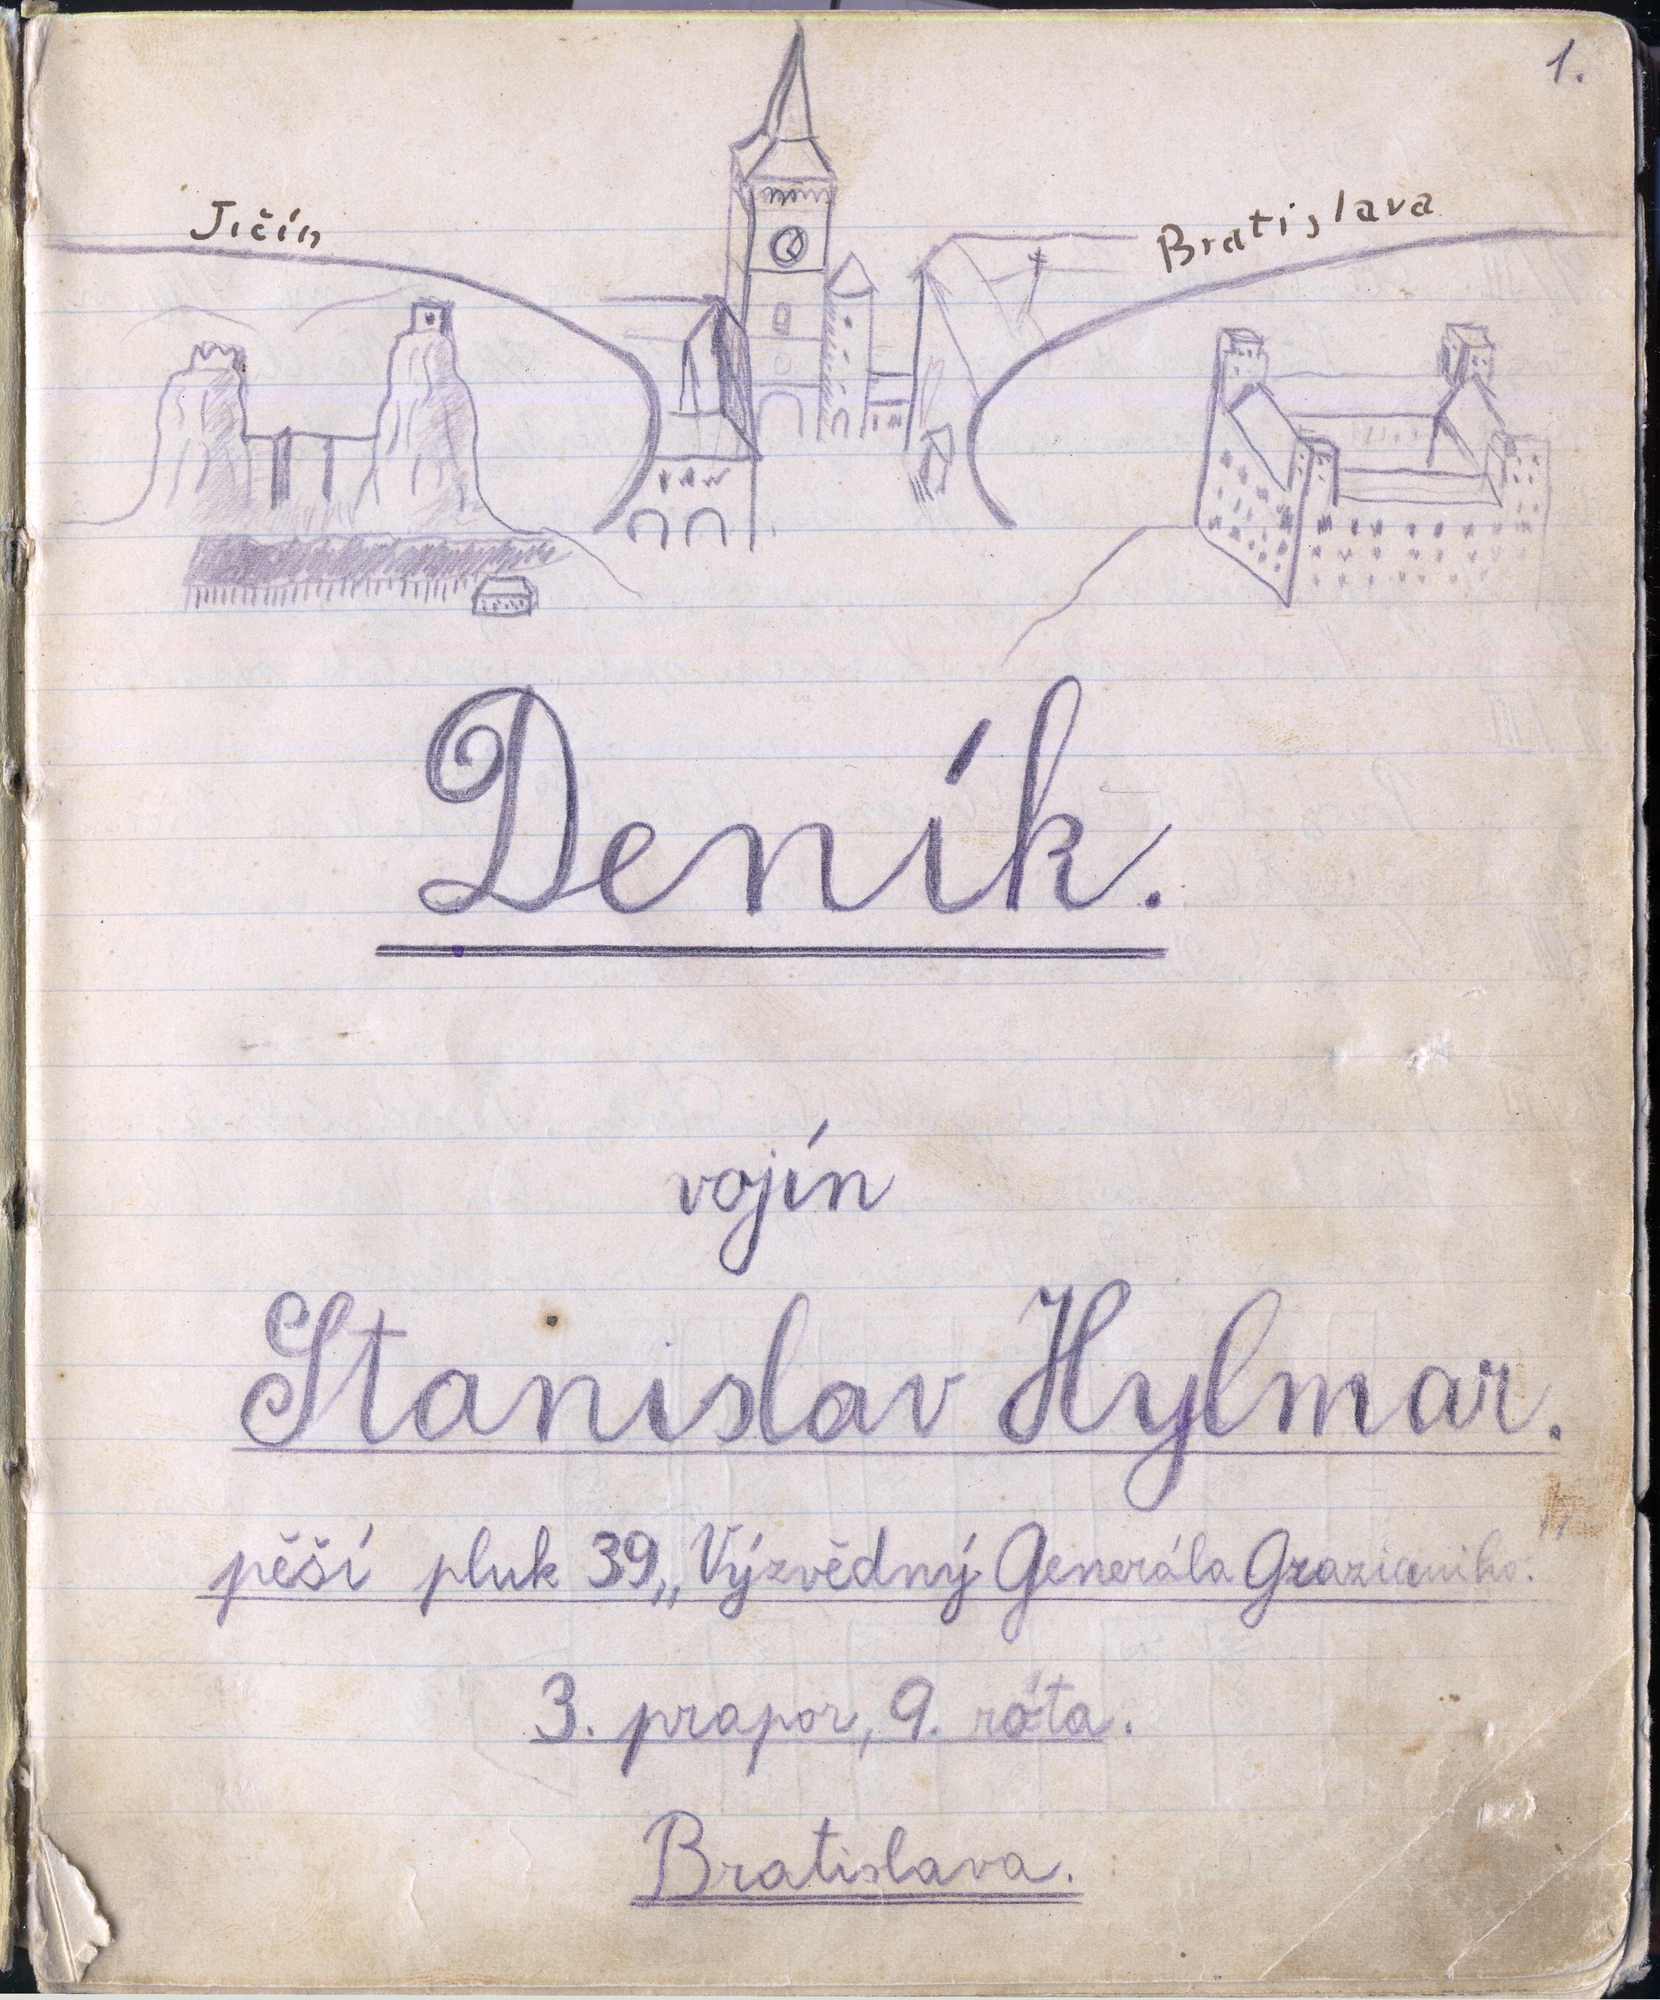 1.
Jičín
Bratislava
Deník.
vojín
Stanislav Hylmar.
pěší pluk 39 „Výzvědný Generála Grazianiho.
3. prapor, 9. róta.
Bratislava.